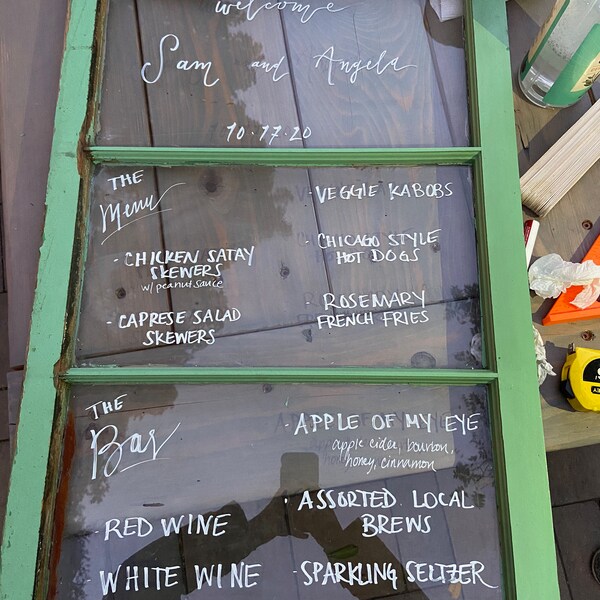 welcome
Sam and Angela
10·17·20
THE
Menu
· CHICKEN SATAY
SKEWERS
w/ peanut sauce
· CAPRESE SALAD
SKEWERS
· VEGGIE KABOBS
· CHICAGO STYLE
HOT DOGS
· ROSEMARY
FRENCH FRIES
THE
Bar
· RED WINE
· WHITE WINE
· APPLE OF MY EYE
apple cider, bourbon,
honey, cinnamon
· ASSORTED LOCAL
BREWS
· SPARKLING SELTZER